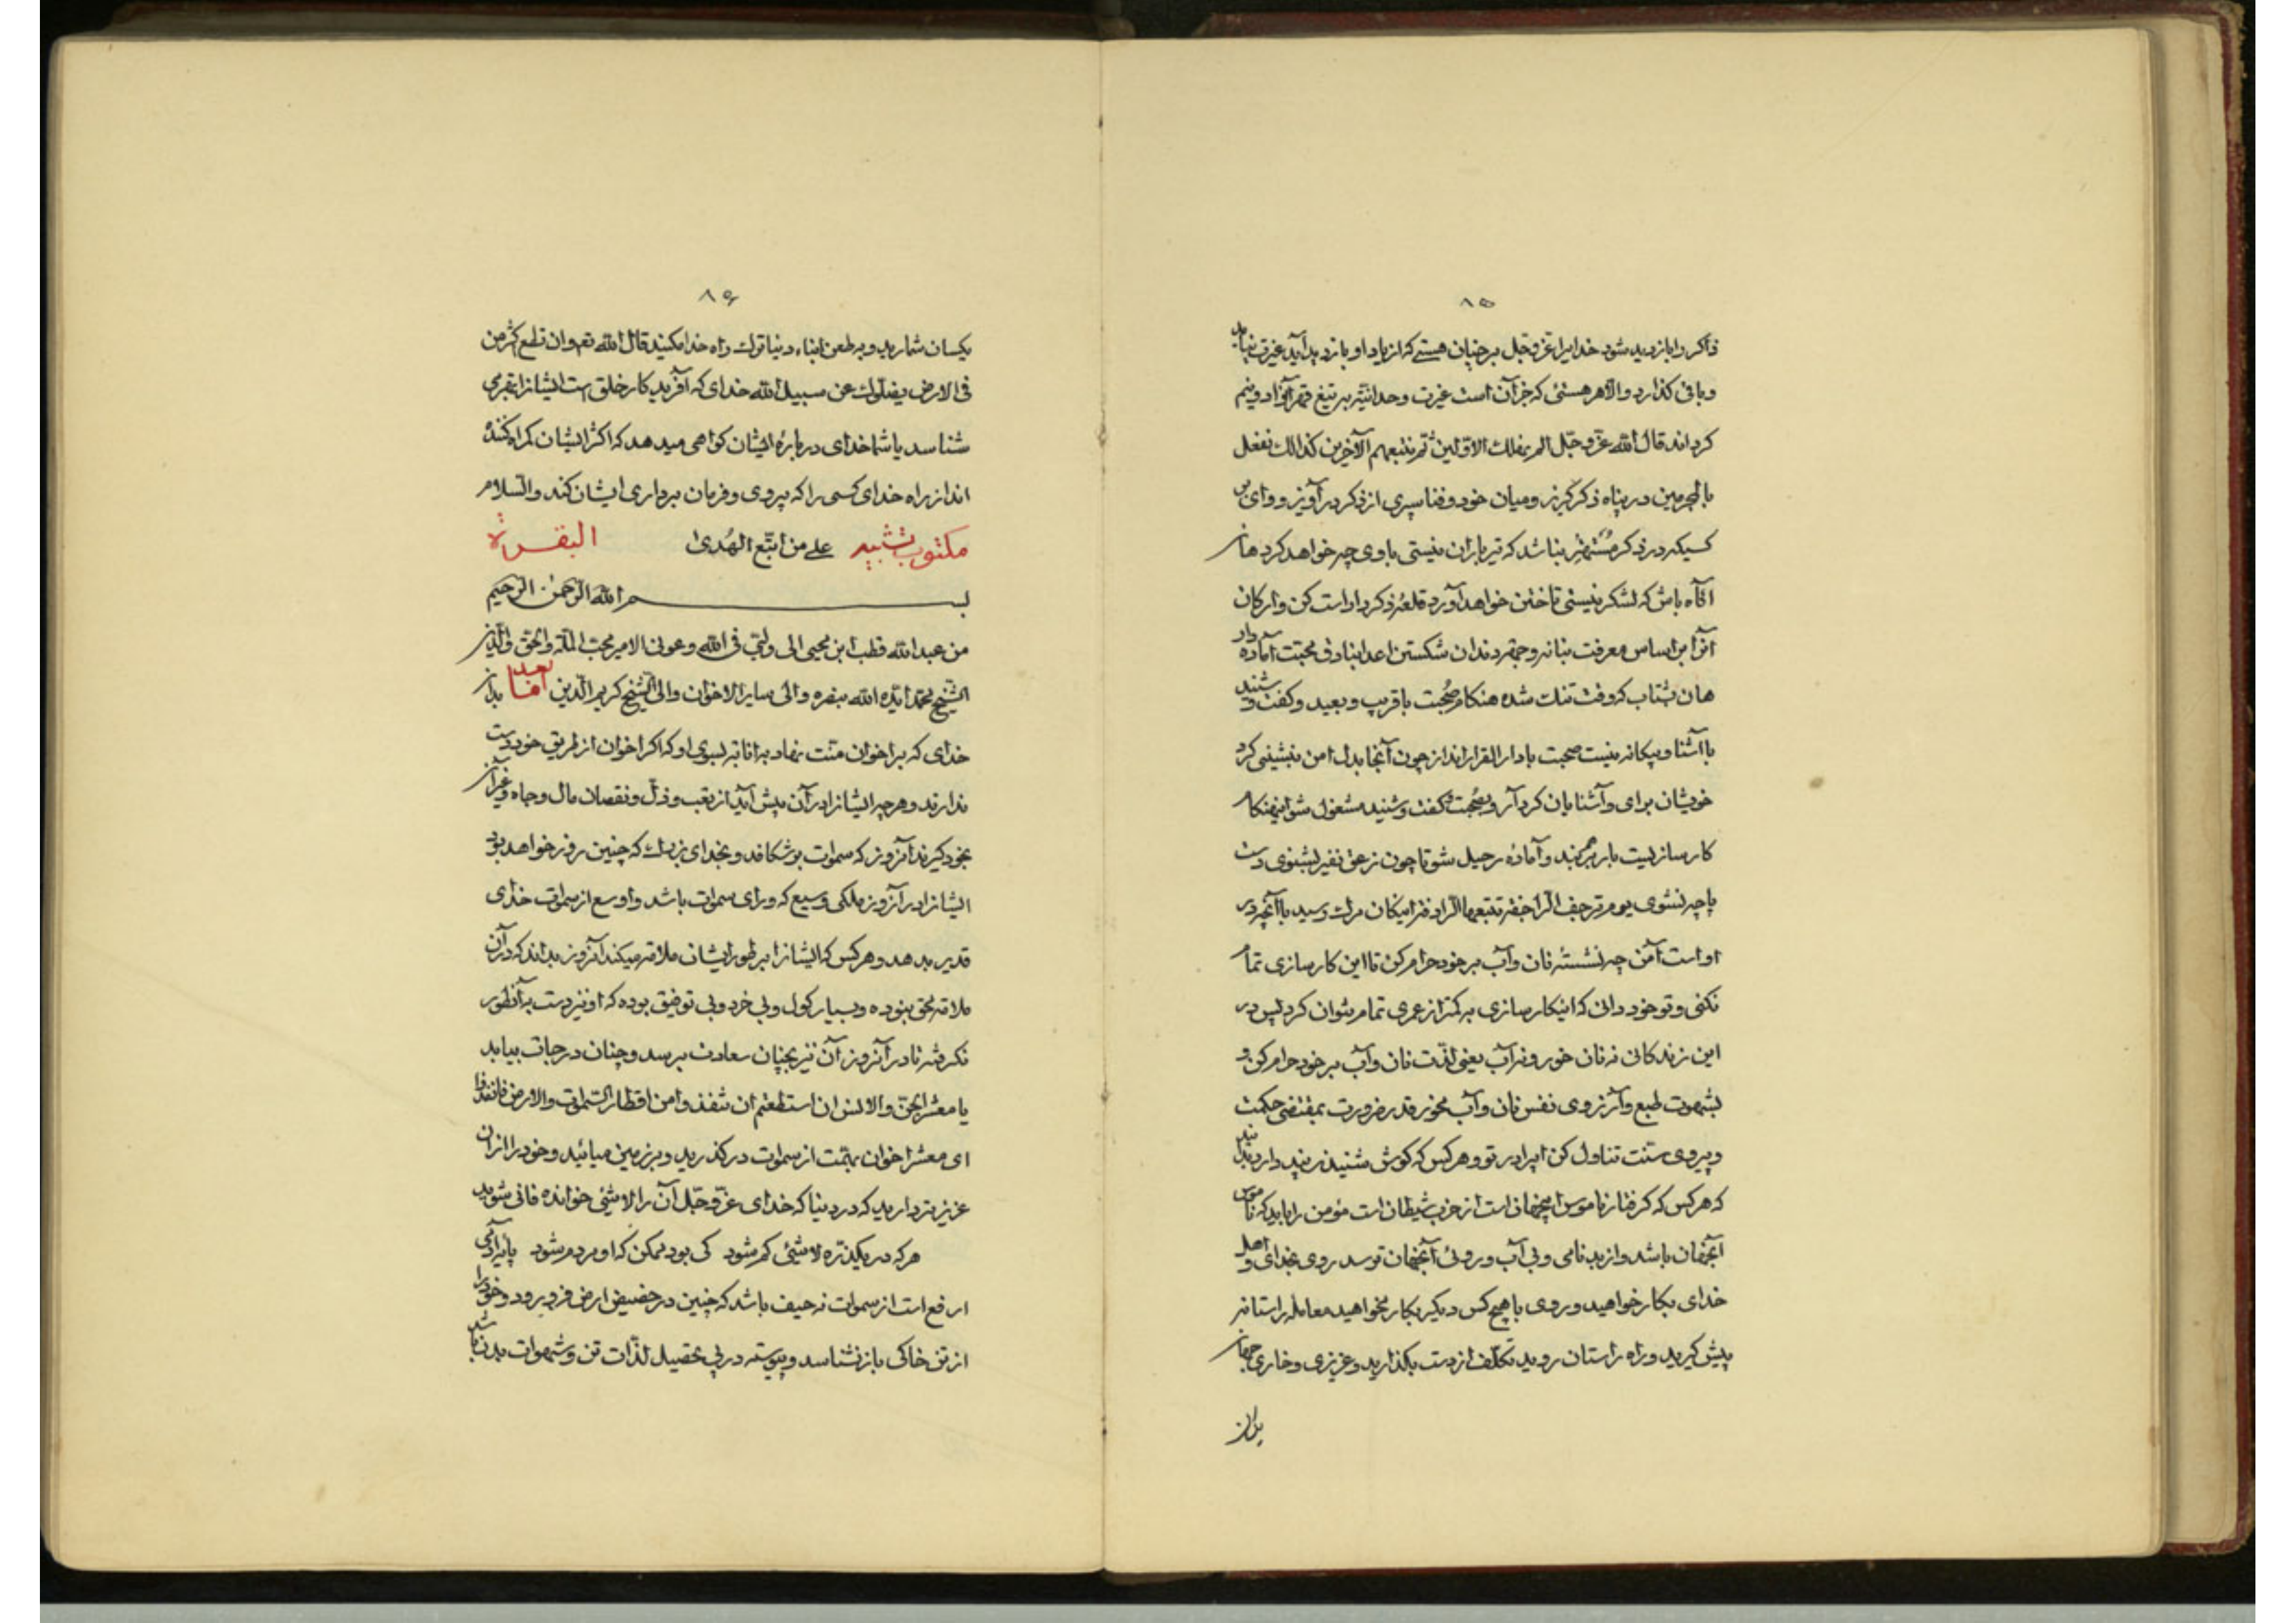 ۸۵
ذاکر را بازدید شود خدایرا عزوجل بر چنان هستی که از یاد او بازدید آید غیرت نیاید
و باقی گذارد والا هر هستئی که جز آن است غیرت وحدانیته بر تیغ قهر آنرا
گرداند قال الله عز وجل الم نهلك الاولین ثم نتبعهم الآخرین کذالك نفعل
بالمجرمین در پناه ذکر گریز و میان خود و فنا سپری از ذکر در آویز و وای بر
کسیکه در ذکر نباشد که تیر باران نیستی با وی چه خواهد کرد هان
آگاه باش که لشکر نیستی تاختن خواهد آورد قلعه ذکر را راست کن و ارکان
آنرا بر اساس معرفت بنا نه و جهة دندان شکستن اعدا بنادق محبت آماده دار
هان بشتاب که وقت تنك شده هنگام صحبت با قریب و بعید و گفت و شنید
با آشنا و بیگانه نیست صحبت با دار القرار انداز چون آنجا بدل امن بنشینی گرد
خویشان برای و آشنایان گرد آر و بصحبت و گفت و شنید مشغول شو اینهنگام
کارسازیست بار بر بند و آماده رحیل شو تا چون زعق نفیر بشنوی دست
پاچه نشوی یوم ترجف الراجفه تتبعها الرادفه اینکان مرك رسید با آنچه در
او است آمن چه نشستهٔ نان و آب بر خود حرام کن تا این کارسازی تمام
نکنی و تو خود دانی که اینکارسازی به کمتر از عمری تمام نتوان کرد پس در
این زندگانی نه نان خور و نه آب یعنی لذت نان و آب بر خود حرام کن و
بشهوت طبع و آرزوی نفس نان و آب مخور قدر ضرورت بمقتضی حکمت
و پیروی سنت تناول کن ای برادر تو و هر کس که گوش شنیدن پند دارد بدانید
که هر کس که گرفتار ناموس اینجهان است از حزب شیطان است مؤمن را باید که ناموس
آنجهان باشد و از بد نامی و بی آب و روئی آنجهان ترسد روی بخدای و اهل
خدای بکار خواهید و روی با هیچ کس دیگر بکار نخواهید معامله راستانه
پیش گیرید و راه راستان روید تکلف از دست بگذارید و عزیزی و خاری جهان
۸۶
یکسان شمارید و به طعن ابناء دنیا ترك راه خدا مکنید قال الله تعم وان تطع اکثر من
فی الارض یضلوك عن سبیل الله خدای که آفریدکار خلق است ایشانرا بهتر می
شناسد یا شما خدای در بارهٔ ایشان گواهی میدهد که اکثر ایشان گمراه کننده
اند از راه خدای کسی را که پیروی و فرمان برداری ایشان کند والسلام
علی من اتبع الهدی مکتوب تشبیه البقرة
بسم الله الرحمن الرحیم
من عبدالله قطب ابن محیی الی ولیی فی الله وعونی الامیر محب الملة والحق والدین
الشیخ محمد ایده الله بنصره والی سایر الاخوان والی الشیخ کریم الدین اما بعد بدان
خدای که بر اخوان منت نهاد به انابة بسوی او که اگر اخوان از طریق خود دست
ندارند و هر چه ایشانرا در آن پیش آید از تعب و ذل و نقصان مال و جاه و غیر آن
بخود گیرند آنروز که سموات بر شکافد و بخدای بزرك که چنین روز خواهد بود
ایشانرا در آنروز ملکی وسیع که ورای سموات باشد و اوسع از سموات خدای
قدیر بدهد و هر کس که ایشانرا بر طور ایشان ملامة میکند آنروز بداند که در آن
ملامة محق نبوده و بسیار گول و بی خرد و بی توفیق بوده که او نیز دست به آنطور
نگرفته تا در آنروز آن نیز بچنان سعادت برسد و چنان درجات بیابد
یا معشر الجن والانس ان استطعتم ان تنفذوا من اقطار السموات والارض فانفذوا
ای معشر اخوان بهمت از سموات در گذرید و بر زمین میائید و خود را از آن
عزیزتر دارید که در دنیا که خدای عز وجل آن را لاشئی خوانده فانی شوید
هر که در یکذره لاشئی گم شود کی بود ممکن که او مردم شود پایهٔ آدمی
ارفع است از سموات نه حیف باشد که چنین در حضیض ارض فرو رود و خود را
از تن خاکی باز نشناسد و پیوسته در پی تحصیل لذات تن و شهوات بدن باشد